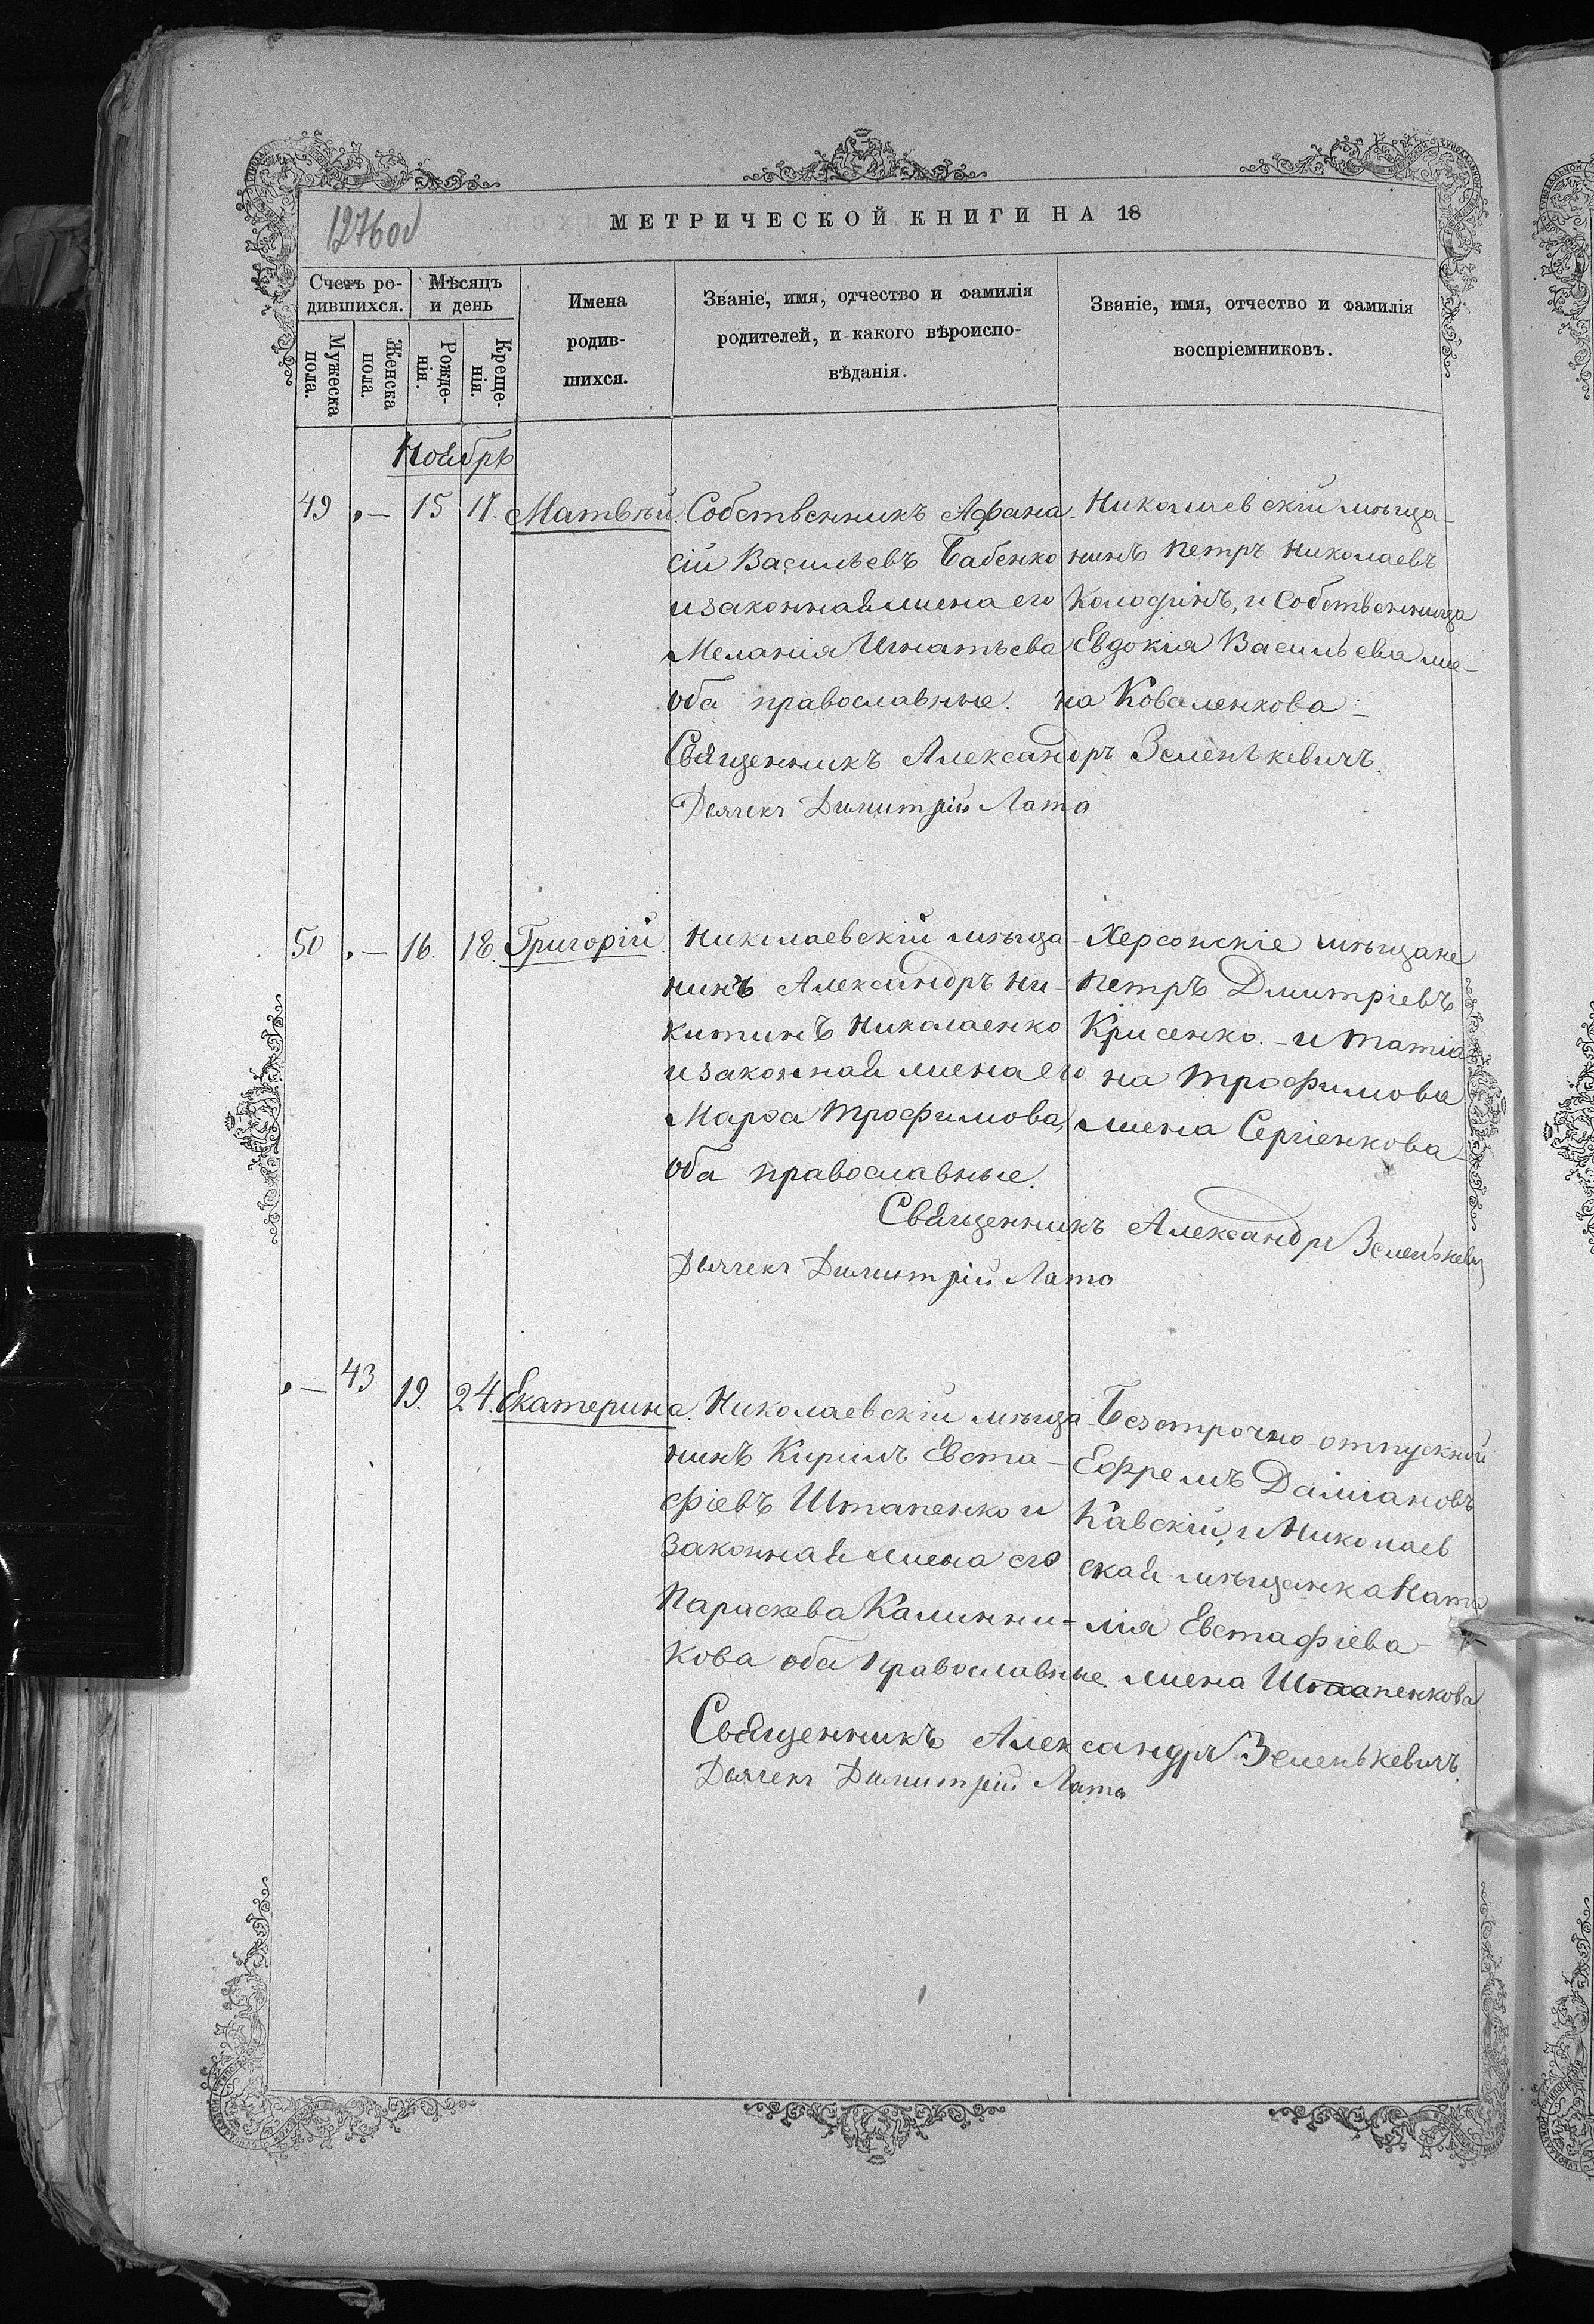 1276об
МЕТРИЧЕСКОЙ КНИГИ НА 18
Счетъ ро-
дившихся.
Мужеска
пола.
Женска
пола.
Мѣсяцъ
и день
Рожде-
нія.
Креще-
нія.
Имена
родив-
шихся.
Званіе, имя, отчество и фамилія
родителей, и какого вѣроиспо-
вѣданія.
Званіе, имя, отчество и фамилія
воспріемниковъ.
Ноябрь
49 „— 15 17. Матвѣй.
Собственникъ Афана-
сій Васильевъ Бабенко
и законная жена его
Меланія Игнатьева
оба православные.
Николаевскій мѣща-
нинъ Петръ Николаевъ
и Собственница
Евдокія Васильева же-
на Коваленкова
Священникъ Александръ Зеленькевичъ.
Дьячекъ Димитрій Лата
50 „— 16. 18. Григорій
Николаевскій мѣща-
нинъ Александръ Ни-
китинъ Николаенко
и законная жена его
Марѳа Трофимова,
оба православные.
Херсонскіе мѣщане
Петръ Дмитріевъ
Крисенко. – и Татіа
на Трофимова
жена Сергіенкова
Священникъ Александръ Зеленькевич
Дьячекъ Димитрій Лата
„— 43 19. 24. Екатерина.
Николаевскій мѣща-
нинъ Кирилъ Евста-
фіевъ Штапенко и
законная жена его
Параскева Калинни-
кова оба православные.
Безсрочно-отпускной
Ефремъ Даміановъ
и Николаев
ская мѣщанка Ната
лія Евстафіева-
жена Штапенкова
Священникъ Александръ Зеленькевичъ.
Дьячекъ Димитрій Лата